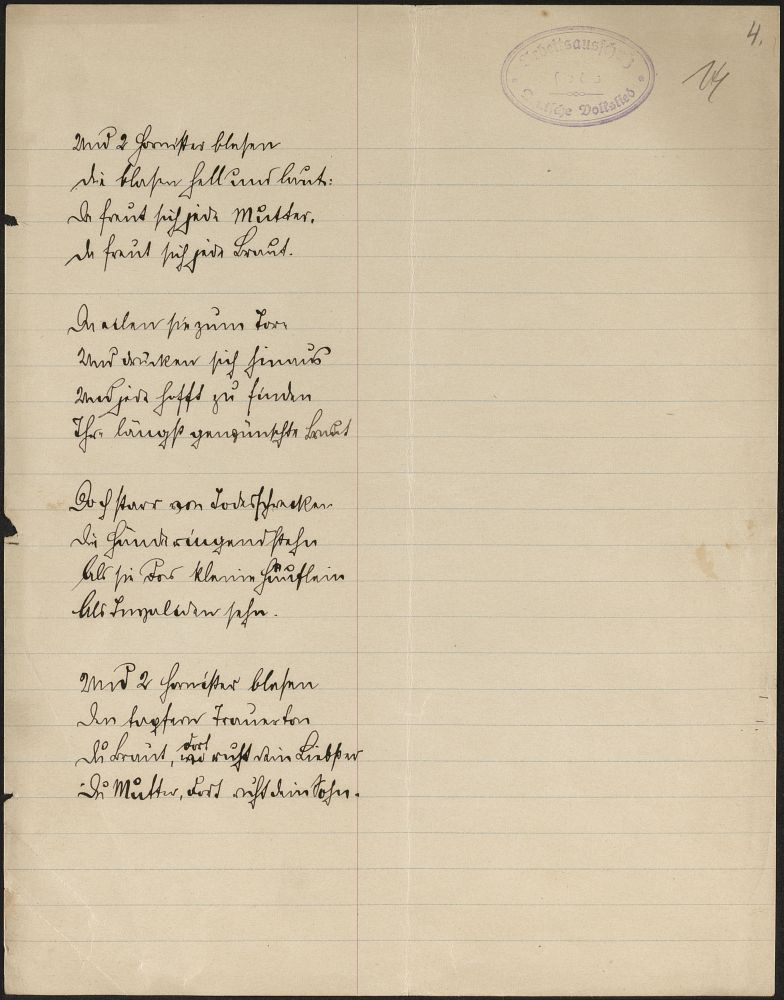 4.
14
Arbeitsausschuß
Deutsche Volkslied
Und 2 Hornister blasen
die blasen hell und laut:
Da freut sich jede Mutter,
da freut sich jede Braut.
Da eilen sie zum Tore
Und drücken sich hinaus
Und jede hofft zu finden
Ihre längst gewünschte Braut
Doch starr von Todesschrecken
Die Hände ringend stehn
Als sie das kleine Häuflein
Als Invaliden sehn.
Und 2 Hornister blasen
Den tapfern Trauerton
Du Braut, dort ruht dein Liebster
Du Mutter, dort ruht dein Sohn.